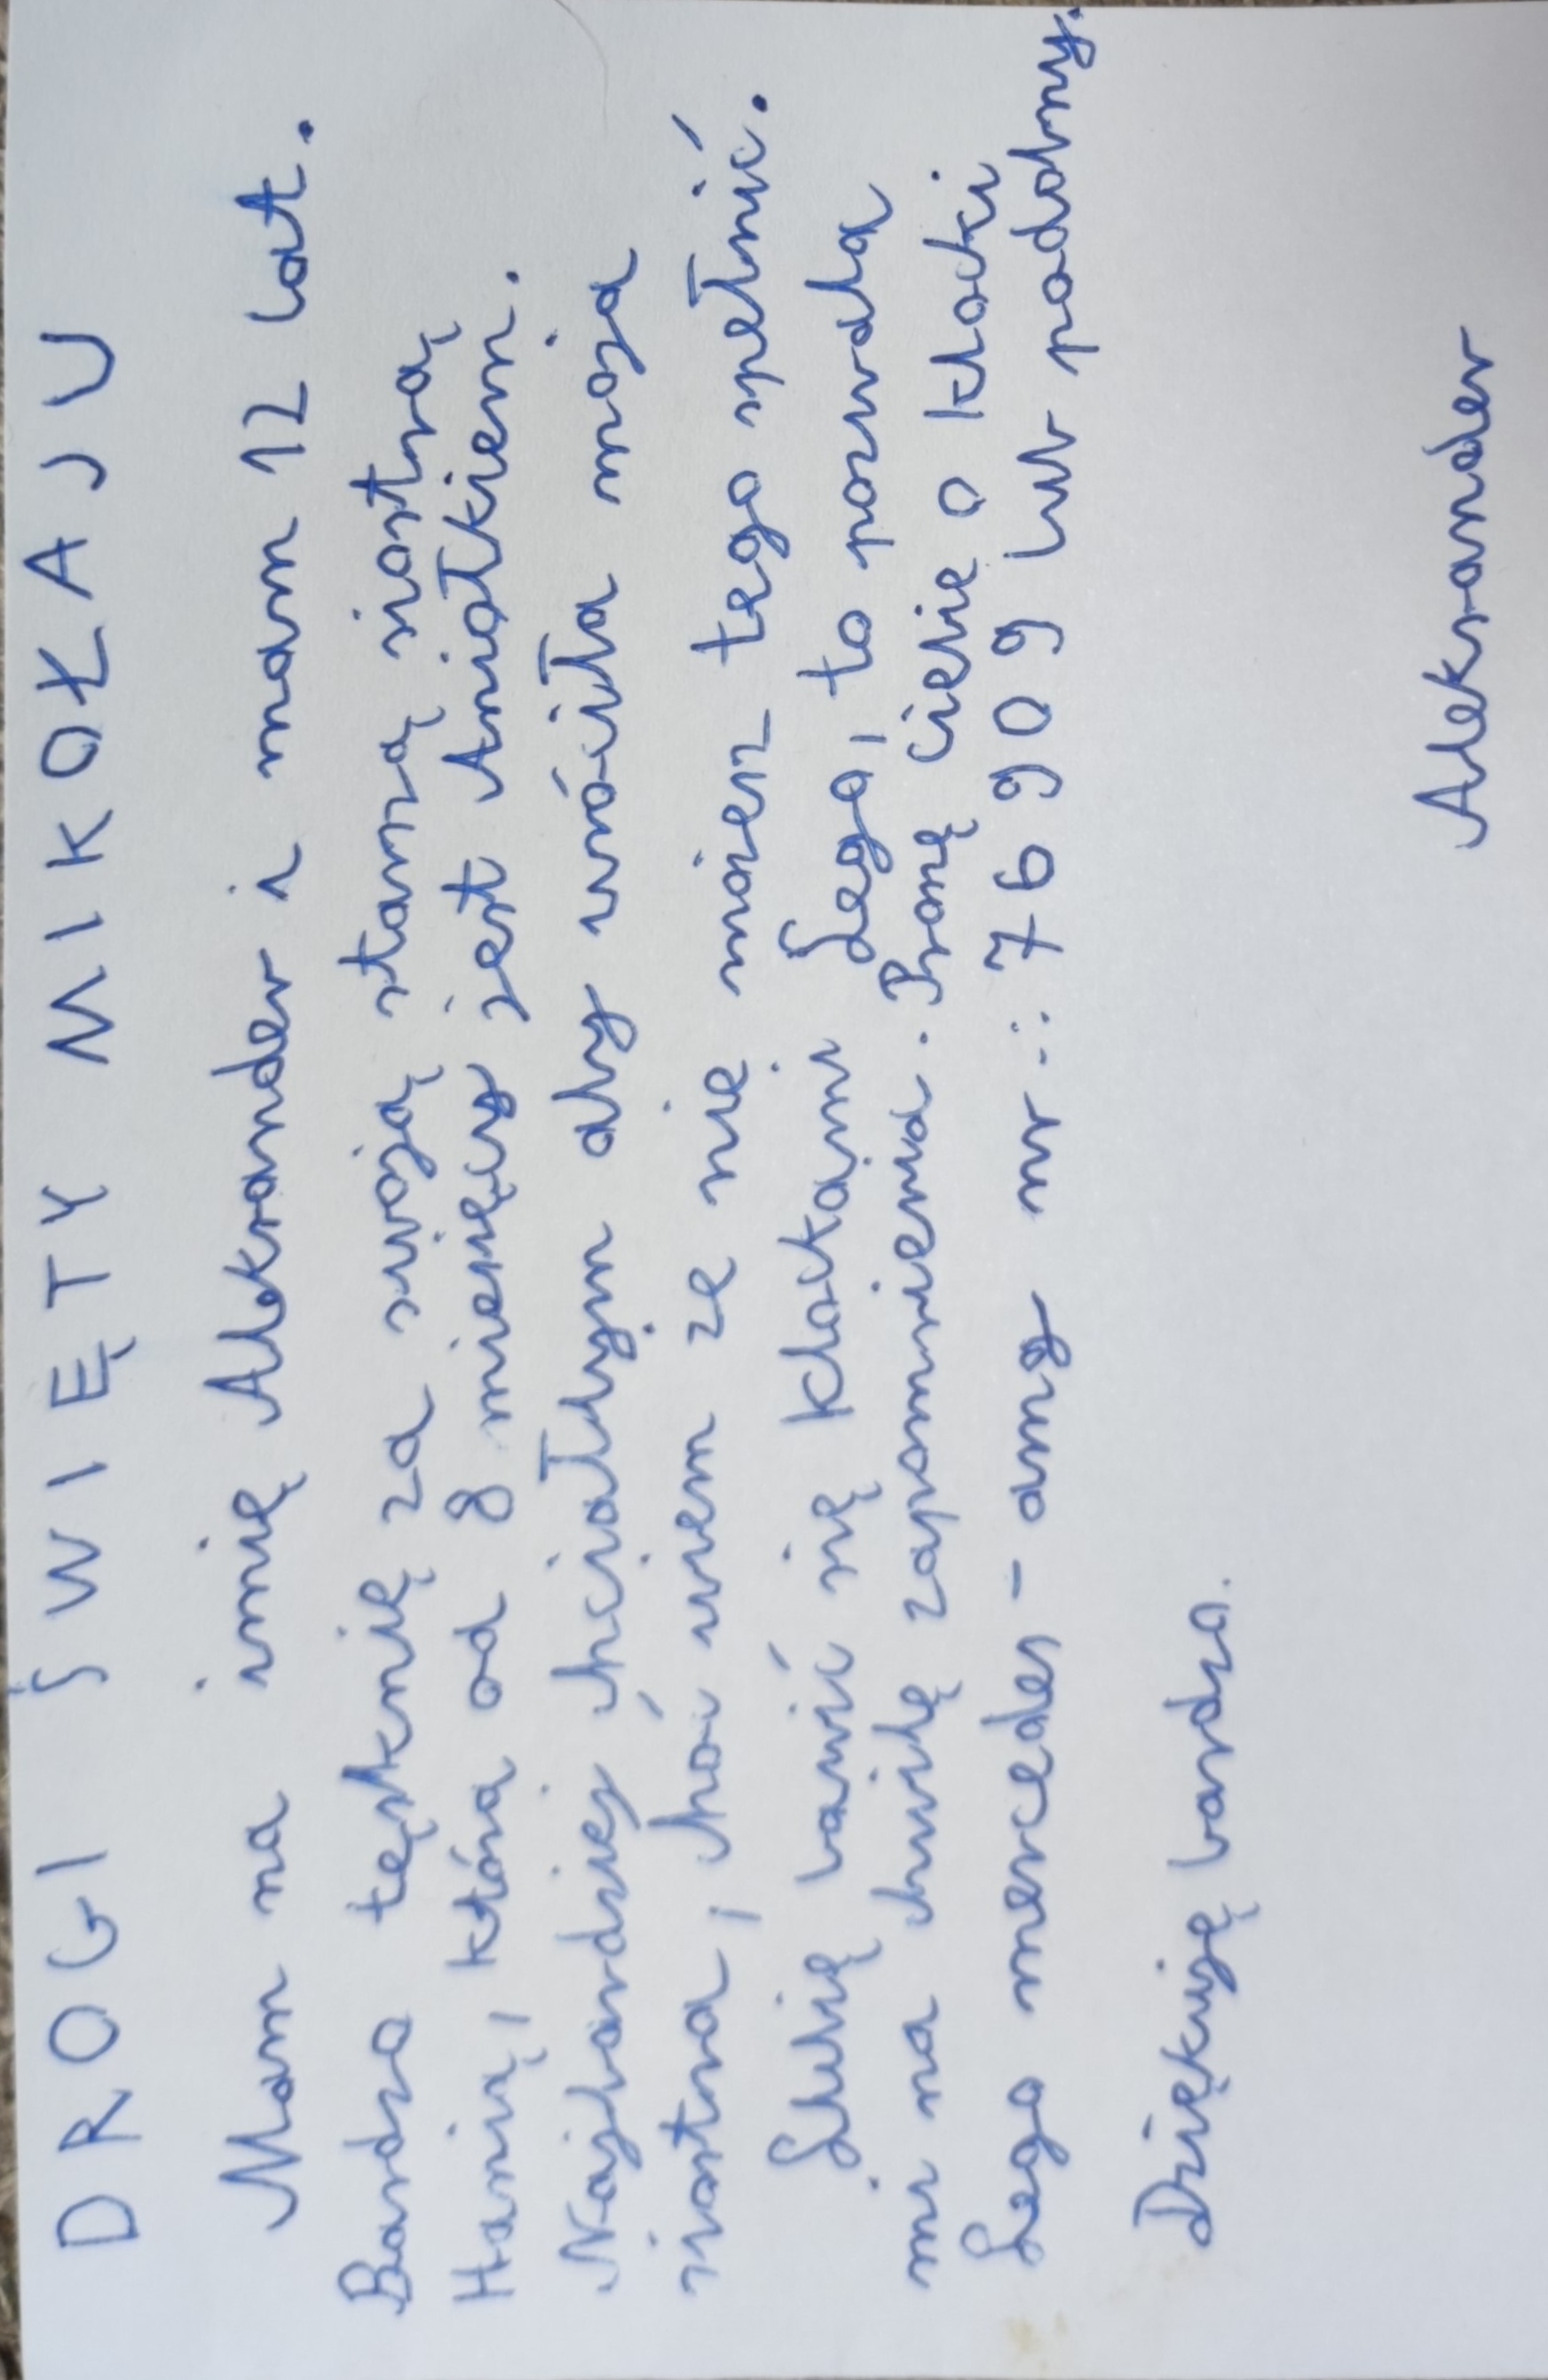 DROGI ŚWIĘTY MIKOŁAJU
Mam na imię Aleksander i mam 12 lat.
Bardzo tęsknię za swoją starszą siostrą
Hanią, która od 8 miesięcy jest Aniołkiem.
Najbardziej chciałbym aby wróciła moja
siostra, choć wiem że nie możesz tego spełnić.
Lubię bawić się klockami Lego, to pozwala
mi na chwilę zapomnienia. Proszę Ciebie o klocki
Lego mercedes - amg nr.: 76909 lub podobny.
Dziękuję bardzo.
Aleksander